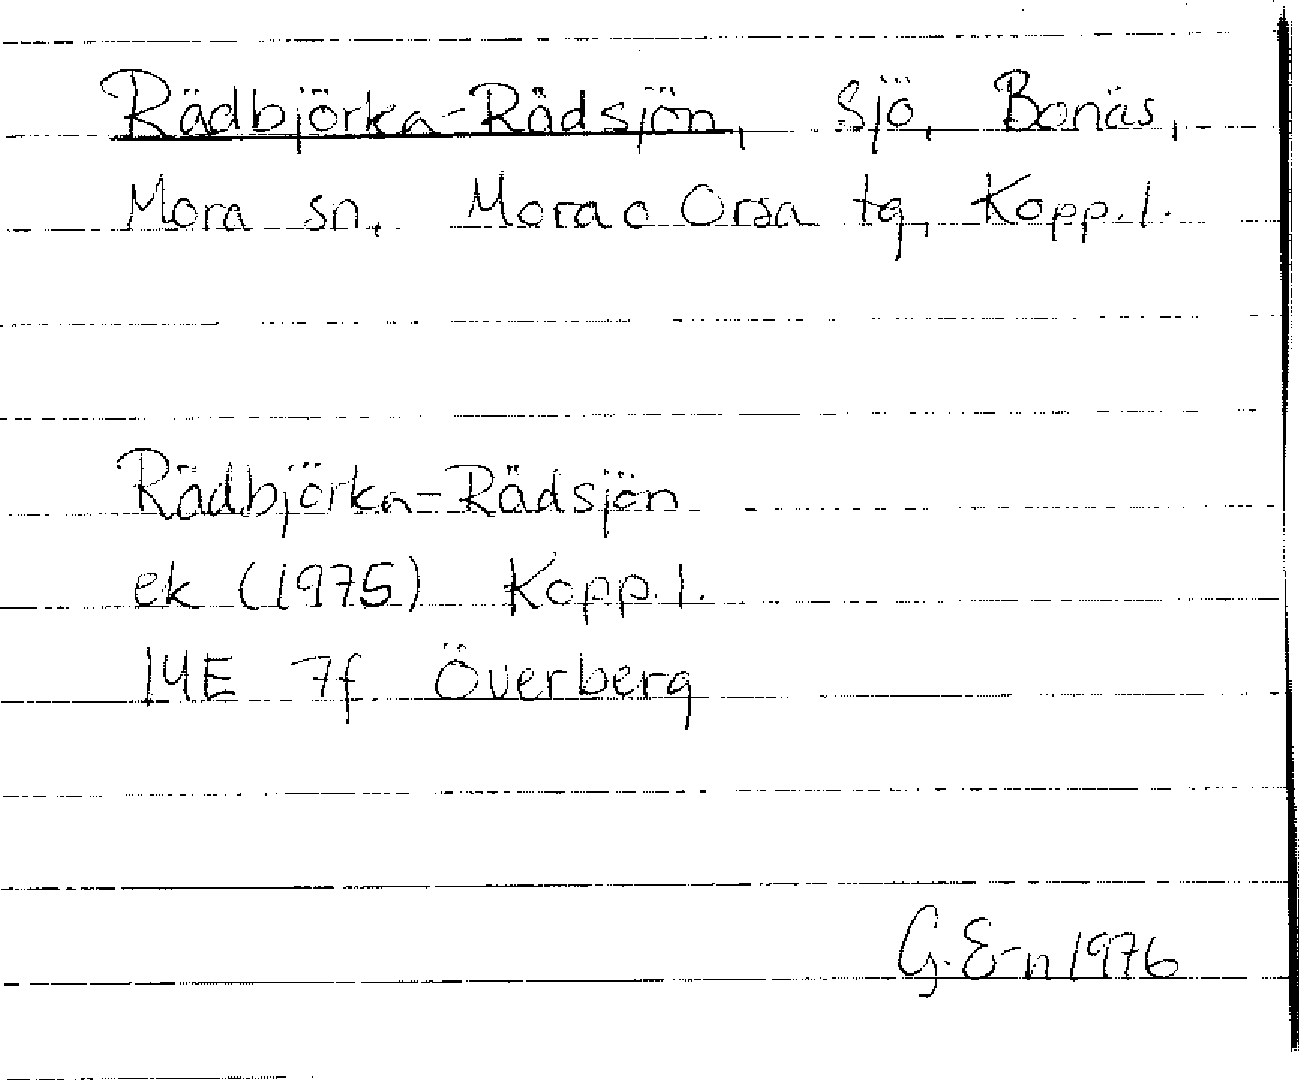 Rädbjörka-Rädsjön, Sjö, Bonäs,
Mora sn, Mora o Orsa tg, Kopp.l.
Rädbjörka-Rädsjön
ek (1975) Kopp.l.
14E 7f Överberg
G.E-n 1976